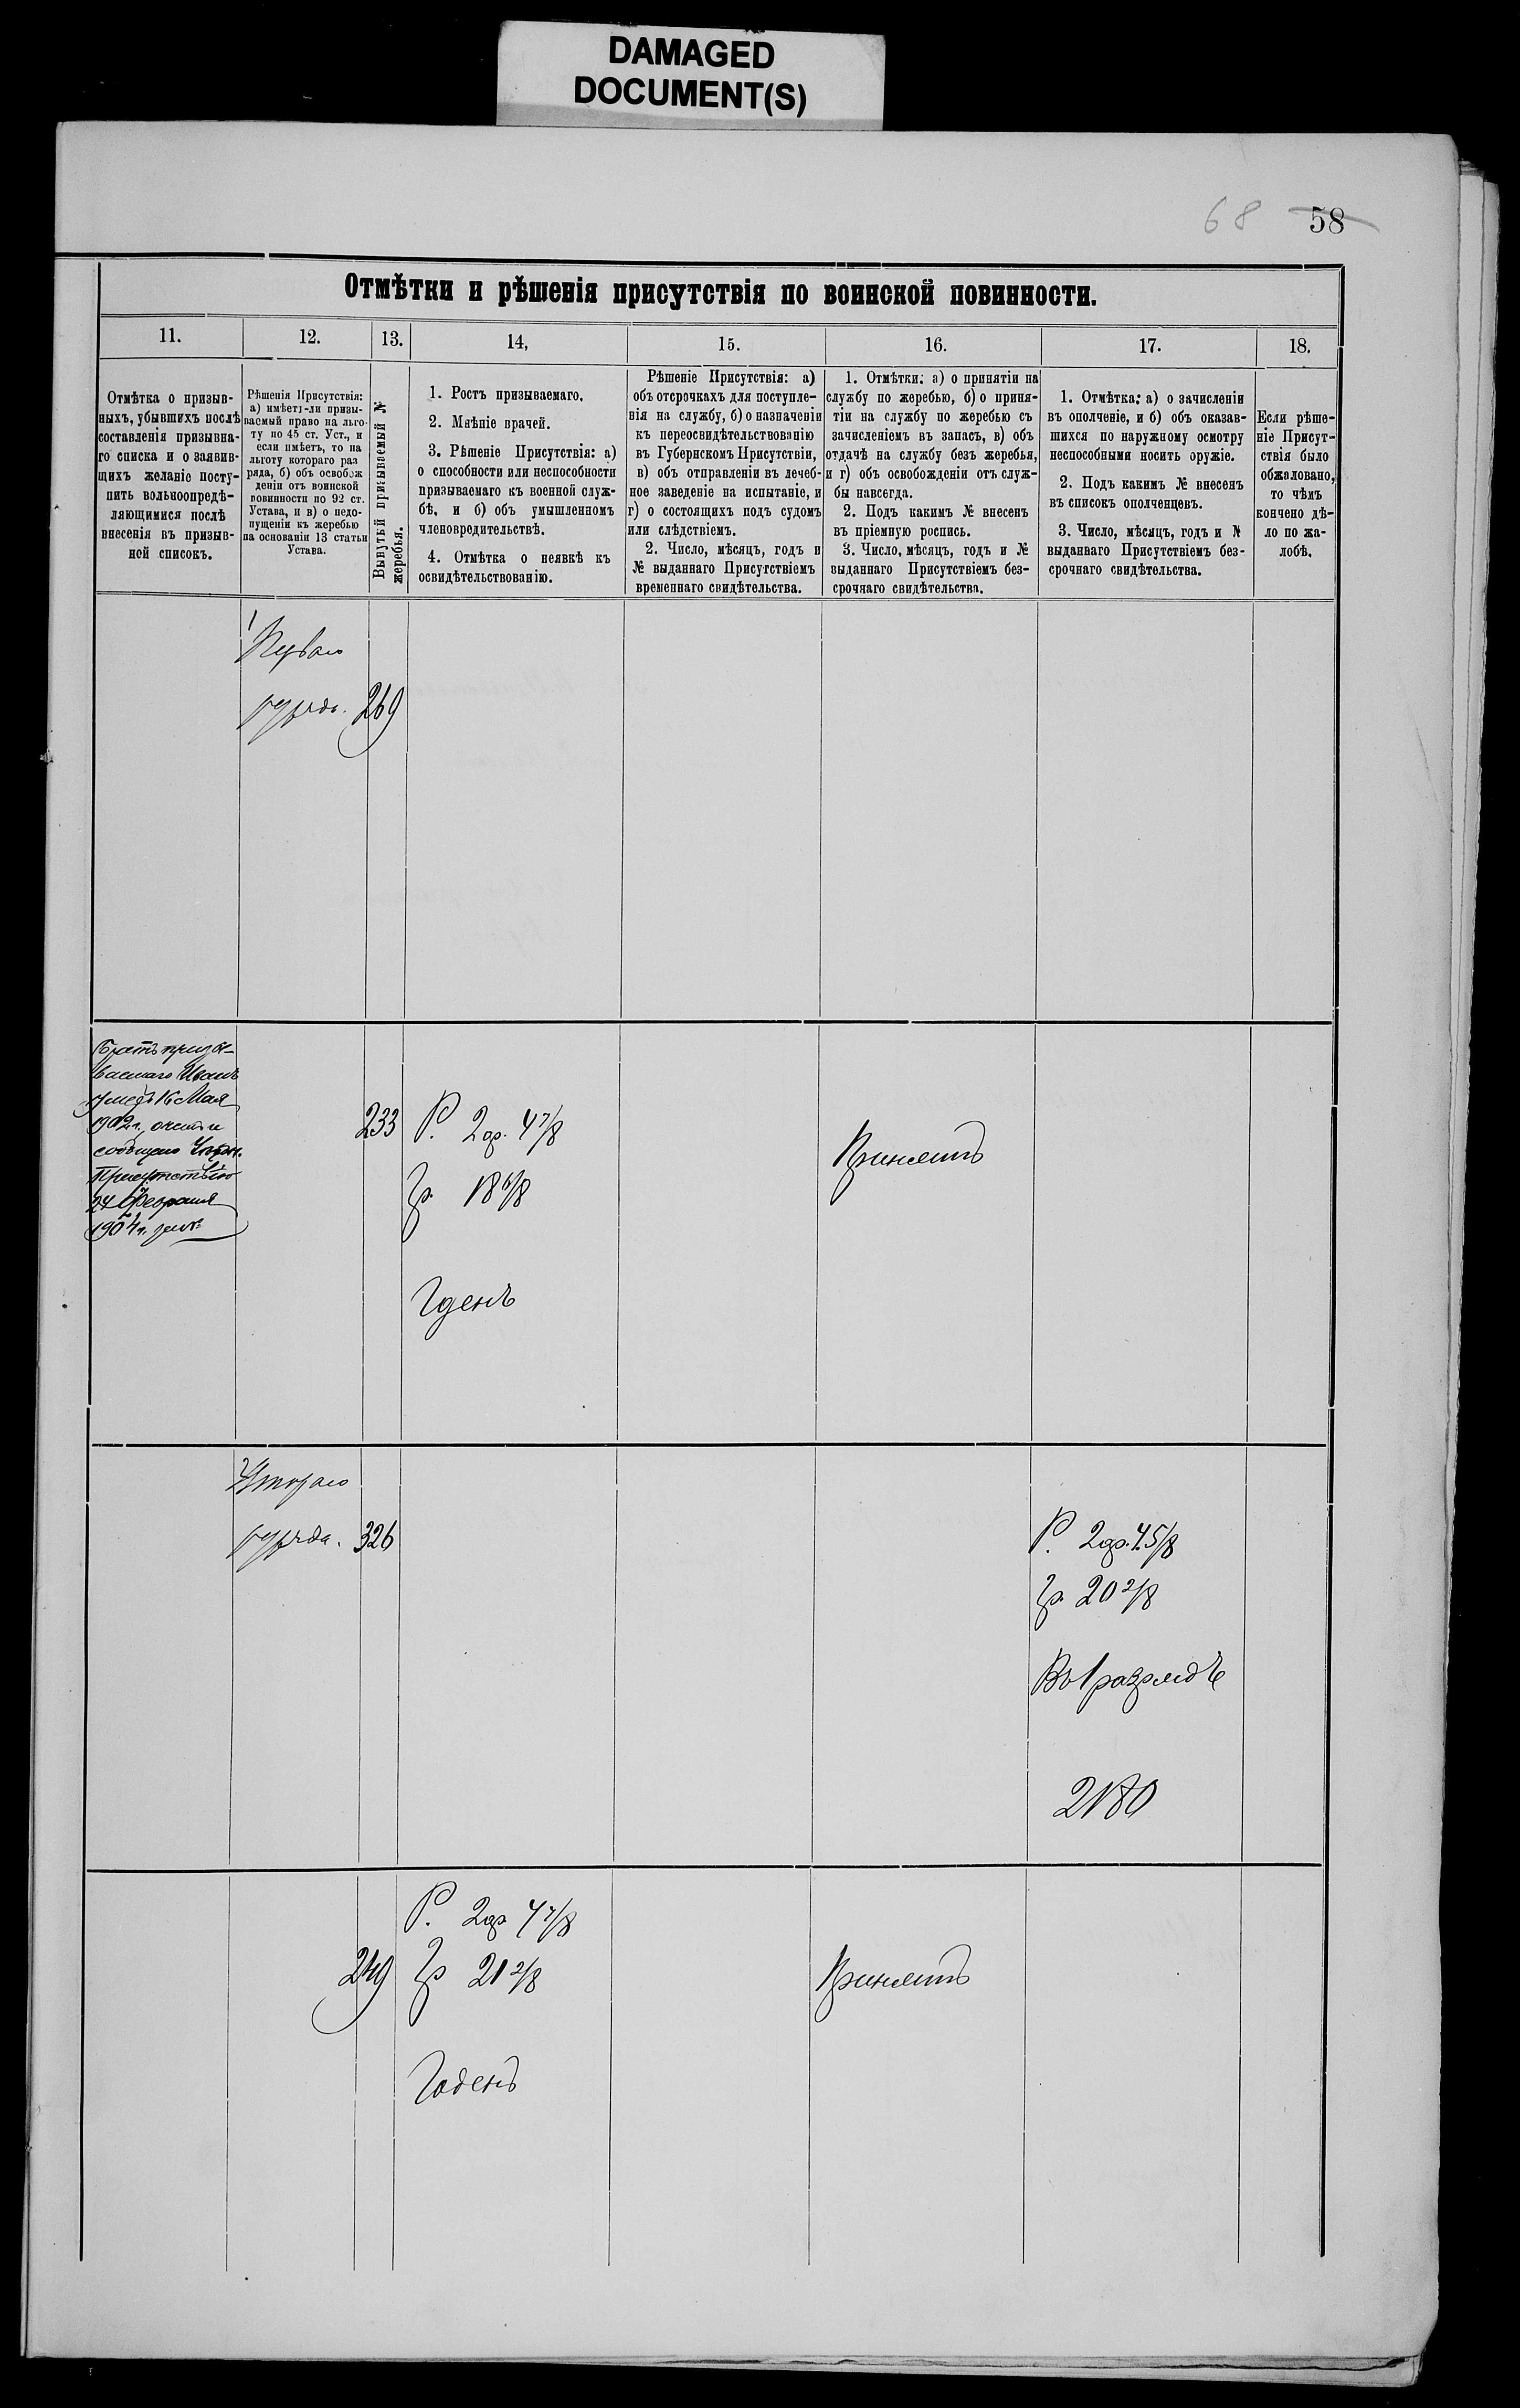 DAMAGED
DOCUMENT(S)
68 58
Отмѣтки и рѣшенія присутствія по воинской повинности.
11. 12. 13. 14, 15. 16. 17. 18.
Отмѣтка о призыв-
ныхъ, убывшихъ послѣ
составленія призывна-
го списка и о заявив-
щихъ желаніе посту-
пить вольноопредѣ-
ляющимися послѣ
внесенія въ призыв-
ной списокъ.
Рѣшенія Присутствія:
а) имѣетъ-ли призы-
ваемый право на льго-
ту по 45 ст. Уст., и
если имѣетъ, то на
льготу котораго раз
ряда, б) объ освобож
деніи отъ воинской
повинности по 92 ст.
Устава, и в) о недо-
пущеніи къ жеребью
на основаніи 13 статьи
Устава.
Вынутый призываемый №
жеребья.
1. Ростъ призываемаго.
2. Мнѣніе врачей.
3. Рѣшеніе Присутствія: а)
о способности или неспособности
призываемаго къ военной служ-
бѣ, и б) объ умышленномъ
членовредительствѣ.
4. Отмѣтка о неявкѣ къ
освидѣтельствованію.
Рѣшеніе Присутствія: а)
объ отсрочкахъ для поступле-
нія на службу, б) о назначеніи
къ переосвидѣтельствованію
въ Губернскомъ Присутствіи,
в) объ отправленіи въ лечеб-
ное заведеніе на испытаніе, и
г) о состоящихъ подъ судомъ
или слѣдствіемъ.
2. Число, мѣсяцъ, годъ и
№ выданнаго Присутствіемъ
временнаго свидѣтельства.
1. Отмѣтки: а) о принятіи на
службу по жеребью, б) о приня-
тіи на службу по жеребью съ
зачисленіемъ въ запасъ, в) объ
отдачѣ на службу безъ жеребья,
и г) объ освобожденіи отъ служ-
бы навсегда.
2. Подъ какимъ № внесенъ
въ пріемную роспись.
3. Число, мѣсяцъ, годъ и №
выданнаго Присутствіемъ без-
срочнаго свидѣтельства.
1. Отмѣтка: а) о зачисленіи
въ ополченіе, и б) объ оказав-
шихся по наружному осмотру
неспособными носить оружіе.
2. Подъ какимъ № внесенъ
въ списокъ ополченцевъ.
3. Число, мѣсяцъ, годъ и №
выданнаго Присутствіемъ без-
срочнаго свидѣтельства.
Если рѣше-
ніе Присут-
ствія было
обжаловано,
то чѣмъ
кончено дѣ-
ло по жа-
лобѣ.
Перваго
разряда. 269
Братъ призы-
ваемаго Иванъ
умеръ 16 Мая
1902 г., о чемъ и
сообщено
Присутствію
24 Февраля
1904 г.
233
Р. 2 ар. 4 7/8
Гр. 18 6/8
Годенъ
Принятъ
Втораго
разряда. 326
Р. 2 ар. 4.5/8
Гр. 20 2/8
Въ 1 разрядъ
2180
Р. 2 ар 4 7/8
249 Гр 21 2/8
Годенъ
Принятъ